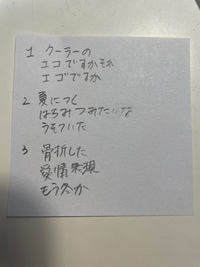 1 クーラーの
エコですかそれ
エゴですか
2 夏につく
はちみつみたいな
うそついた
3 骨折した
愛情表現
もう冬か